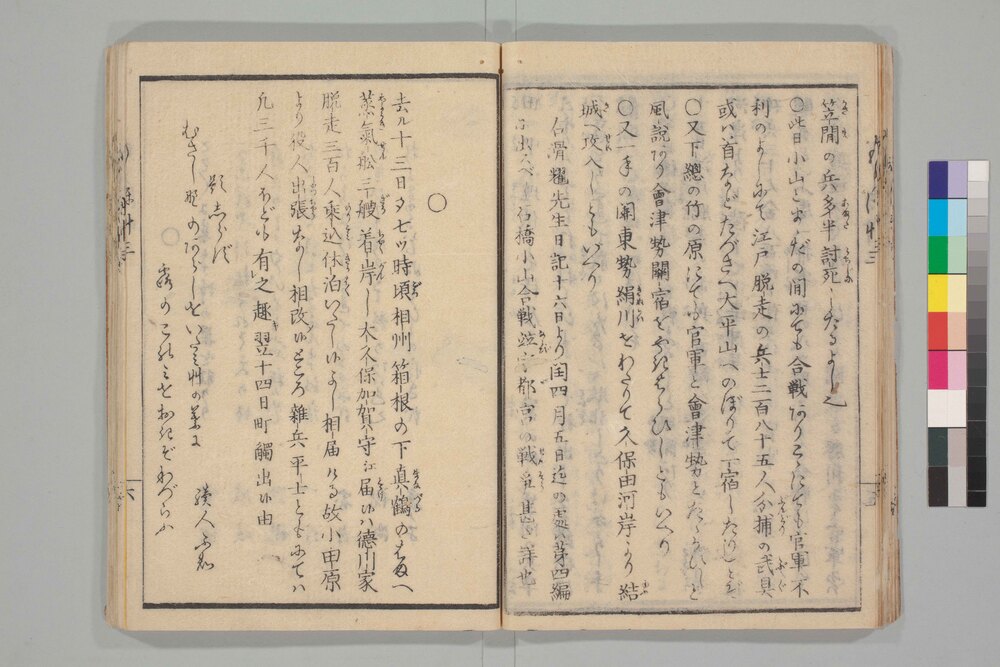 笠間の兵多半討死したるよし也
〇此日小山と飯だの間にても合戦ありこゝにても官軍不
利のよしにて江戸脱走の兵士二百八十五人分捕の武具
或ハ首などたづさへ大平山へのぼりて一宿したりとぞ
〇又下總の竹の原にても官軍と會津勢とたゝかひしと
風説あり會津勢關宿をやきはらひしともいへり
〇又一手の關東勢絹川をわたりて久保田河岸より結
城へ攻入しともいへり
右滑耀先生日記十六日より閏四月五日迄の處ハ第四編
に出べし石橋小山合戦竝宇都宮の戦争甚だ詳也
〇
去ル十三日夕七ツ時頃相州箱根の下真鶴のはまへ
蒸氣舩二艘着岸し大久保加賀守江届にハ徳川家
脱走三百人乗込休泊いたし度よし相届ける故小田原
より役人出張なし相改候ところ雜兵平士ともにてハ
凡三千人ほども有之趣翌十四日町觸出候由
題しらず
讀人不知
むさし野のあらしをいたみ草の葉に
露のこれるぞおきぞわづらふ